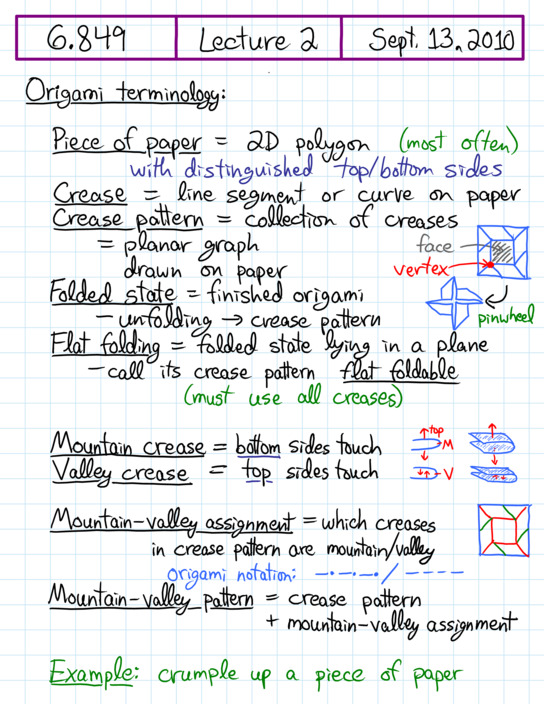 6.849 Lecture 2 Sept. 13, 2010
Origami terminology:
Piece of paper = 2D polygon (most often)
with distinguished top/bottom sides
Crease = line segment or curve on paper
Crease pattern = collection of creases
= planar graph face
drawn on paper vertex
Folded state = finished origami
- unfolding → crease pattern pinwheel
Flat folding = folded state lying in a plane
- call its crease pattern flat foldable
(must use all creases)
Mountain crease = bottom sides touch top M
Valley crease = top sides touch V
Mountain-valley assignment = which creases
in crease pattern are mountain/valley
origami notation: -·-·-·/ ----
Mountain-valley pattern = crease pattern
+ mountain-valley assignment
Example: crumple up a piece of paper